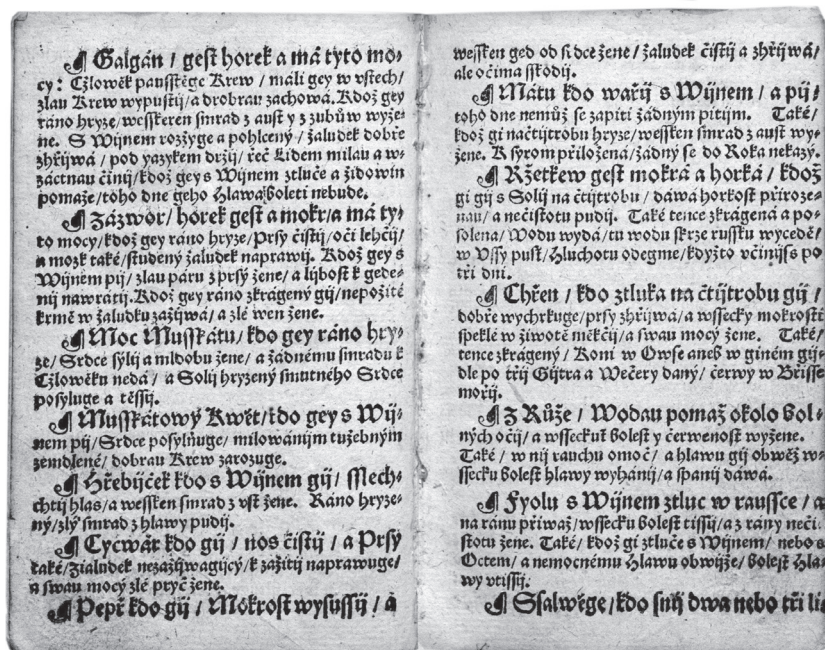 ¶ Galgán / gest horek a má tyto mo-
cy: Cžlowěk pausstěge Krew / máli gey w vstech /
zlau Krew wypustij / a dobrau zachowá. Kdož gey
ráno hryze / wesskeren smrad z aust y z zubůw wyže-
ne. S Wijnem rozžyge a pohlcený / žaludek dobře
zhřijwá / pod yazykem držij / řeč Lidem milau a w-
záctnau činij / kdož gey s Wijnem ztluče a židowin
pomaže / toho dne geho Hlawa boleti nebude.
¶ Zázwor / horek gest a mokr / a má ty-
to mocy / kdož gey ráno hryze / Prsy čistij / oči lehčij /
a mozk také / studený žaludek naprawij. Kdož gey s
Wijnem pij / zlau páru z prsý žene / a lijbost k gede-
nij nawrátij. Kdož gey ráno zkrágený gij / nepožité
krmě w žaludku zažijwá / a zlé wen žene.
¶ Moc Musskátu / kdo gey ráno hry-
ze / Srdce sýlij a mdlobu žene / a žádnému smradu k
Cžlowěku nedá / a Solij hryzený smutného Srdce
posyluge a těssij.
¶ Musskátowý Kwět / kdo gey s Wij-
nem pij / Srdce posylňuge / milowánijm tužebným
zemdlené / dobrau Krew zarozuge.
¶ Hřebijček kdo s Wijnem gij / sslech-
chtij hlas / a wessken smrad z vst žene. Ráno hryze-
ný / zlý smrad z hlawy pudij.
¶ Cycwár kdo gij / nos čistij / a Prsy
také / žialudek nezažijwagijcý / k zažitij naprawuge /
a swau mocý zlé pryč žene.
¶ Pepř kdo gij / Mokrost wysussij / a
wessken ged od srdce žene / žaludek čistij a zhřijwá /
ale očima sskodij.
¶ Mátu kdo wařij s Wijnem / a pij /
toho dne nemůž se zapiti žádným pitijm. Také /
kdož gi načtijtrobu hryze / wessken smrad z aust wy-
žene. K syrom přiložená / žádný se do Roka nekazý.
¶ Ržetkew gest mokrá a horká / kdož
gi gij s Solij na čtijtrobu / dáwá horkost přiroze-
nau / a nečistotu pudij. Také tence zkrágená a po-
solena / Wodu wydá / tu wodu skrze russku wyceďě /
w Vssy pust / Hluchotu odegme / kdyžto včinijss po
tři dni.
¶ Chřen / kdo ztluka na čtijtrobu gij /
dobře wychrkuge / prsy zhřijwá / a wssecky mokrosti
speklé w životě měkčij / a swau mocý žene. Také /
tence zkrágený / Koni w Owse aneb w giném gij-
dle po třij Gijtra a Wečery daný / čerwy w Břisse
mořij.
¶ Z Růže / Wodau pomaž okolo bol-
ných očij / a wsseckuť bolest y čerwenost wyžene.
Také / w nij rauchu omoč / a hlawu gij obwěž w-
ssecku bolest hlawy wyhánij / a spanij dáwá.
¶ Fyolu s Wijnem ztluc w raussce / a
na ránu přiwaž / wssecku bolest tissij / a z rány neči-
stotu žene. Také / kdož gi ztluče s Wijnem / nebo s
Octem / a nemocnému Hlawu obwijže / bolest Hla-
wy vtissij.
¶ Ssalwěge / kdo snij dwa nebo tři li-